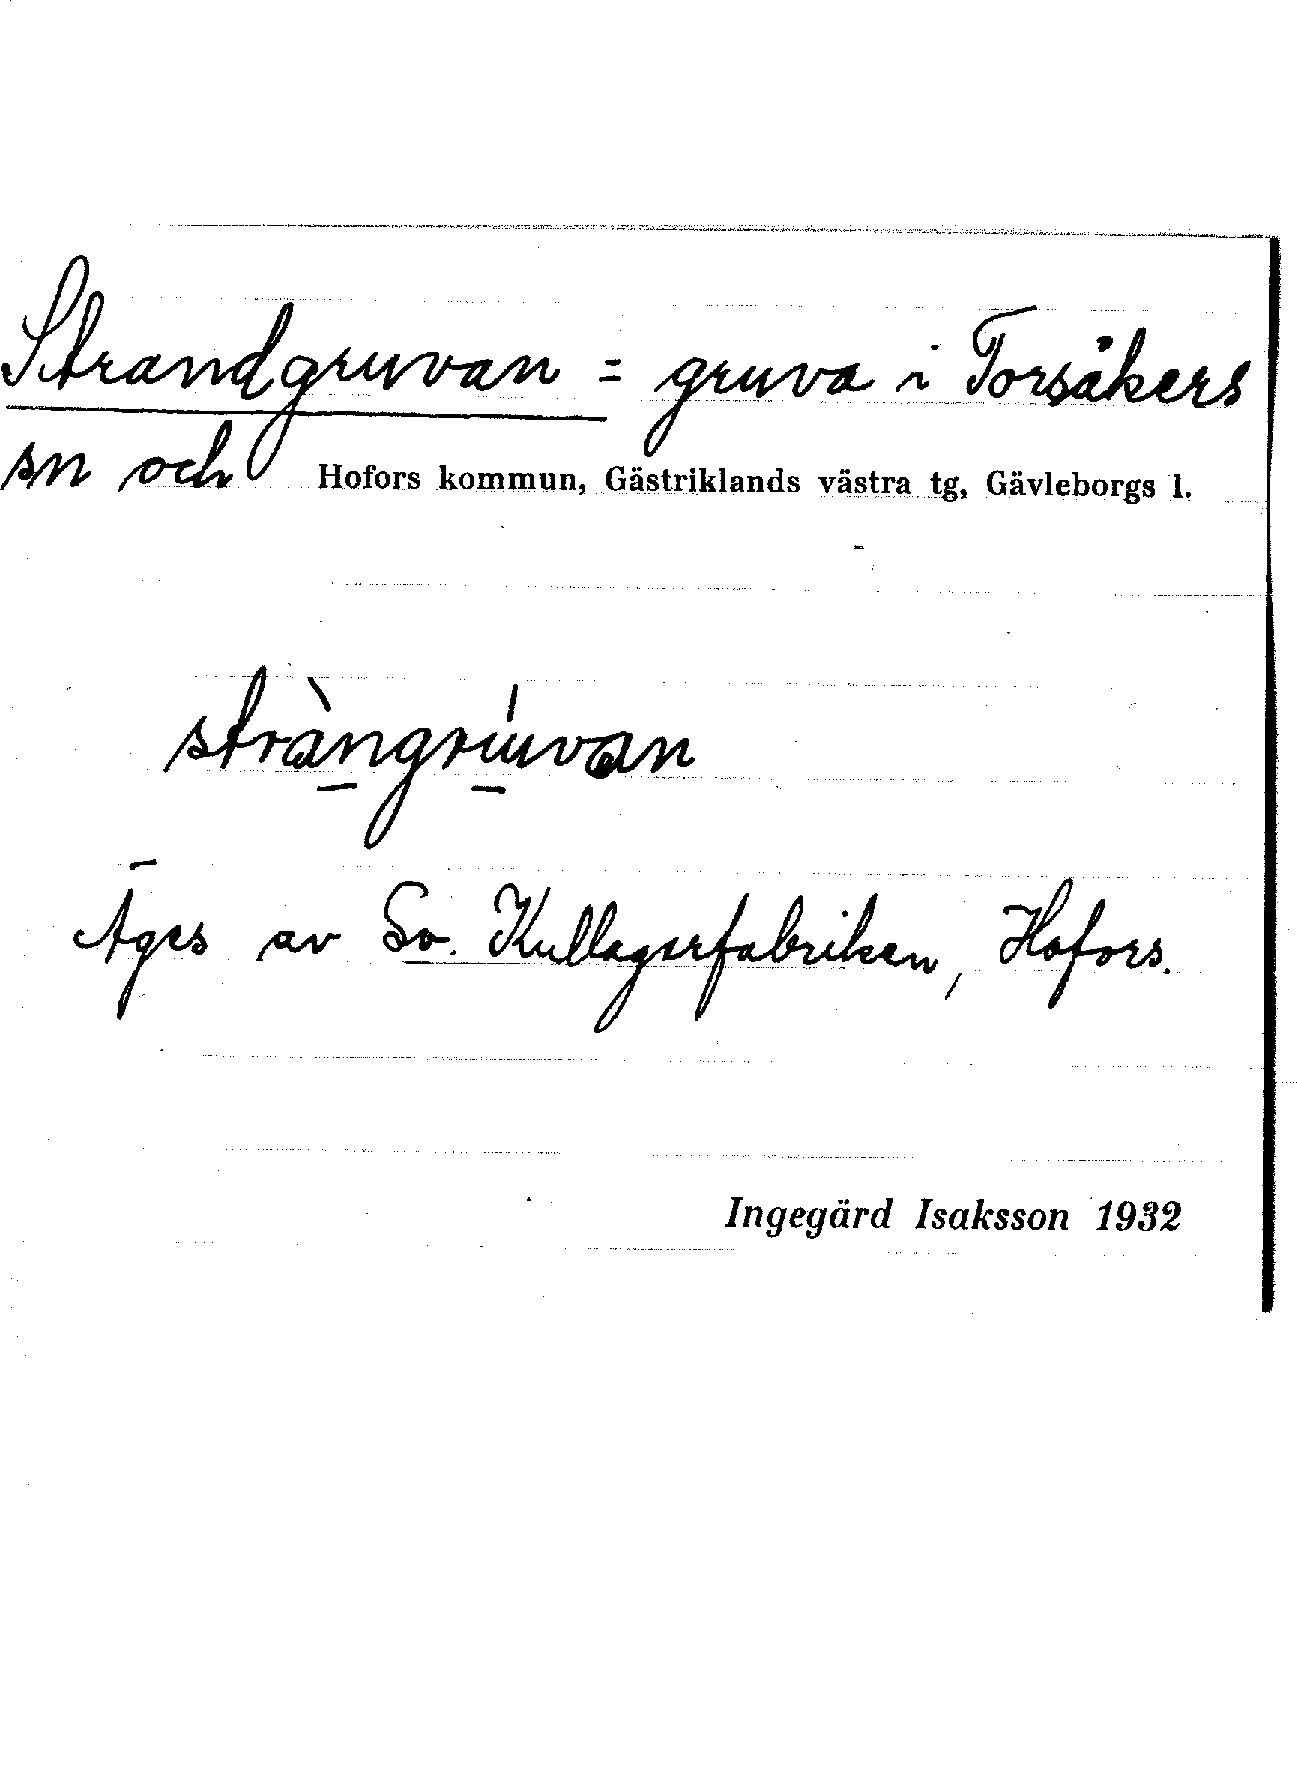 Strandgruvan = gruva i Torsåkers
sn och Hofors kommun, Gästriklands västra tg, Gävleborgs l.
stràngrúvan
Äges av Sv. Kullagerfabriken, Hofors.
Ingegärd Isaksson 1932